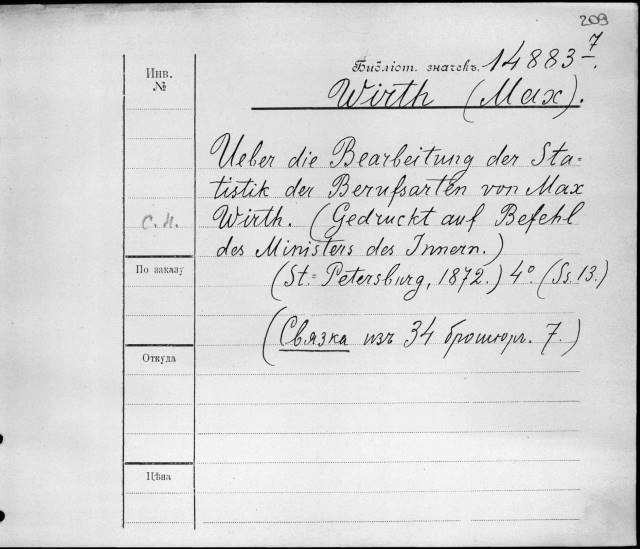 209
Библіот. значекъ. 14883 7/-.
Инв.
№
Wirth (Max).
Ueber die Bearbeitung der Sta=
tistik der Berufsarten von Max
Wirth. (Gedruckt auf Befehl
с.н.
des Ministers des Innern.)
По заказу
(St.=Petersburg, 1872.) 4° (Ss. 13.)
(Связка изъ 34 брошюръ. 7.)
Откуда
Цѣна